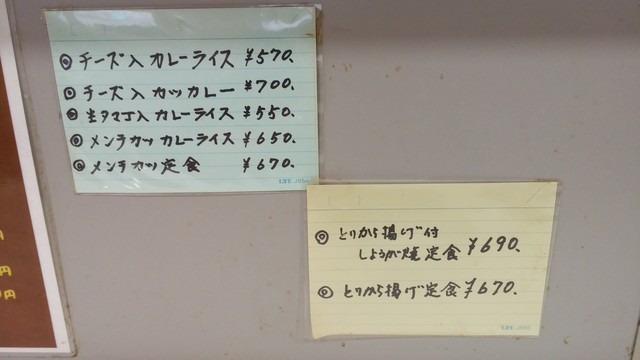 ◎ チーズ入 カレーライス ¥570.
◎ チーズ入 カツカレー ¥700.
◎ 生タマゴ入 カレーライス ¥550.
◎ メンチカツ カレーライス ¥650.
◎ メンチカツ定食 ¥670.
LIFE
◎ とりから揚げ付
しょうが焼 定食 ¥690.
◎ とりから揚げ定食 ¥670.
LIFE
円
円
円